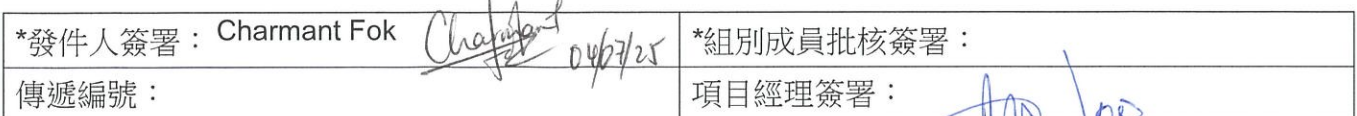 *發件人簽署： Charmant Fok Charmant 04/07/25
*組別成員批核簽署：
傳遞編號：
項目經理簽署：